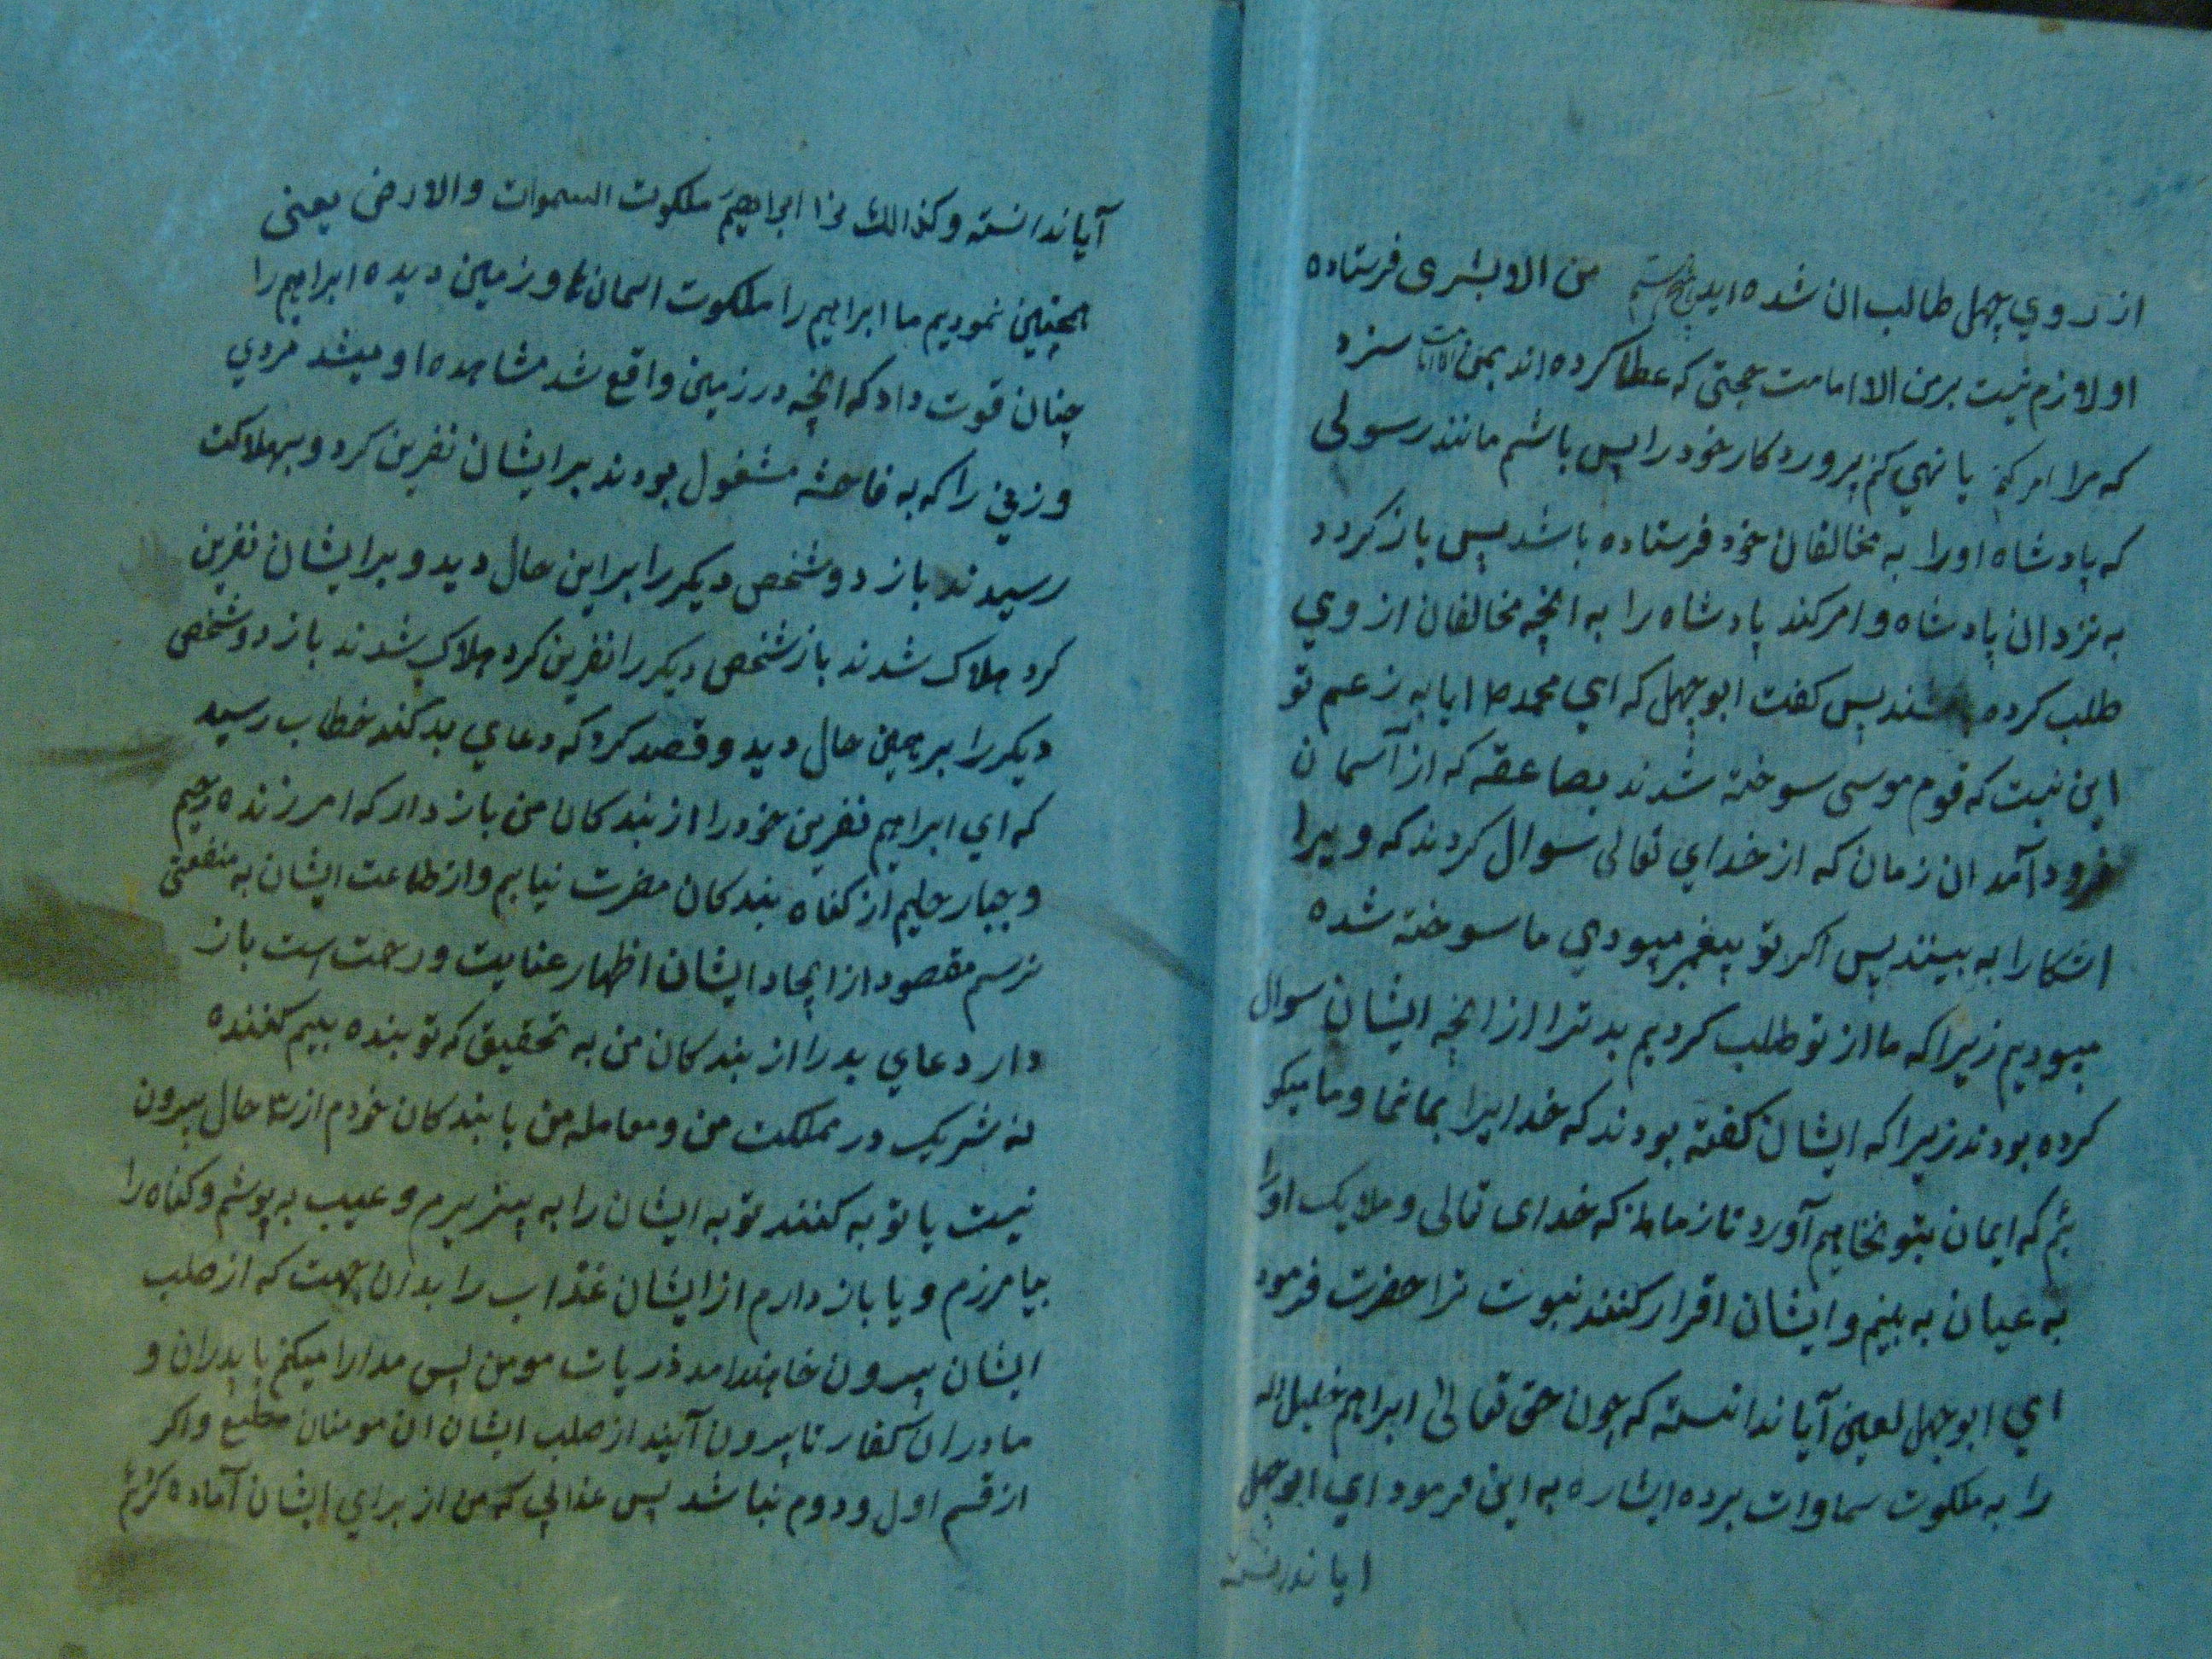 از روي جهل طالب ان شده ايد من الا بشری فرستاده
او لازم نيست برمن الا امامت حجتی که عطا کرده اند بمن سزد
که مرا امر کنم يا نهي کنم پروردکار خود را پس باشم مانند رسولی
که پادشاه او را به مخالفان خود فرستاده باشد پس باز کردد
به نزد ان پادشاه و امر کند پادشاه را به انچه مخالفان از وي
طلب کرده شند پس کفت ابوجهل که اي محمد ص ايا به زعم تو
اين نيست که قوم موسی سوخته شدند بصاعقه که از آسمان
فرود آمد ان زمان که از خداي تعالی سوال کردند که ويرا
اشکارا به بينند پس اکر تو پيغمبر ميبودي ما سوخته شده
ميبوديم زيرا که ما از تو طلب کرديم بدتر از انچه ايشان سوال
کرده بودند زيرا که ايشان کفته بودند که خدايرا بما نما و ما ميکو
ئم که ايمان بتو نخاهيم آورد تا زمانی که خدای تعالی و ملايک او را
به عيان به بينم و ايشان اقرار کنند نبوت ترا حضرت فرمود
اي ابوجهل لعين آيا ندانسته که چون حق تعالی ابراهيم خليل اله
را به ملکوت سماوات برده ايشاره به اين فرمود اي ابوجهل
ايا ندانسته
آيا ندانسته و کذالك نرا ابراهيم ملکوت السموات والارض يعنی
همچنين نموديم ما ابراهيم را ملکوت اسمان و زمين ديده ابراهيم را
چنان قوت داد که انچه در زمين واقع شد مشاهده او ميشد مردي
و زني را که به فاحشه مشغول بودند برايشان نفرين کرد و بهلاکت
رسيدند باز دو شخص ديکر را براين حال ديد و برايشان نفرين
کرد هلاک شدند باز شخص ديکر را نفرين کرد هلاک شدند باز دو شخص
ديکر را بر همين حال ديد و قصد کرد که دعاي بد کند خطاب رسيد
که اي ابراهيم نفرين خود را از بندکان من باز دار که امرزنده رحيم
و جبار حليم از کناه بندکان مضرت نيابم و از طاعت ايشان به منفعتی
نرسم مقصود از ايجاد ايشان اظهار عنايت و رحمت است باز
دار دعاي بد را از بندکان من به تحقيق که تو بنده بيم کننده
نه شريک در مملکت من و معامله من با بندکان خودم از ۳ حال بيرون
نيست يا توبه کنند توبه ايشان را به پذيرم و عيب به پوشم و کناه را
بيامرزم و يا باز دارم از ايشان عذاب را بدان جهت که از صلب
ايشان بيرون خاهند امد ذريات مومن پس مدارا ميکنم با پدران و
مادران کفار تا بيرون آيند از صلب ايشان ان مومنان مطيع و اکر
از قسم اول و دوم نباشد پس عذابي که من از براي ايشان آماده کردم